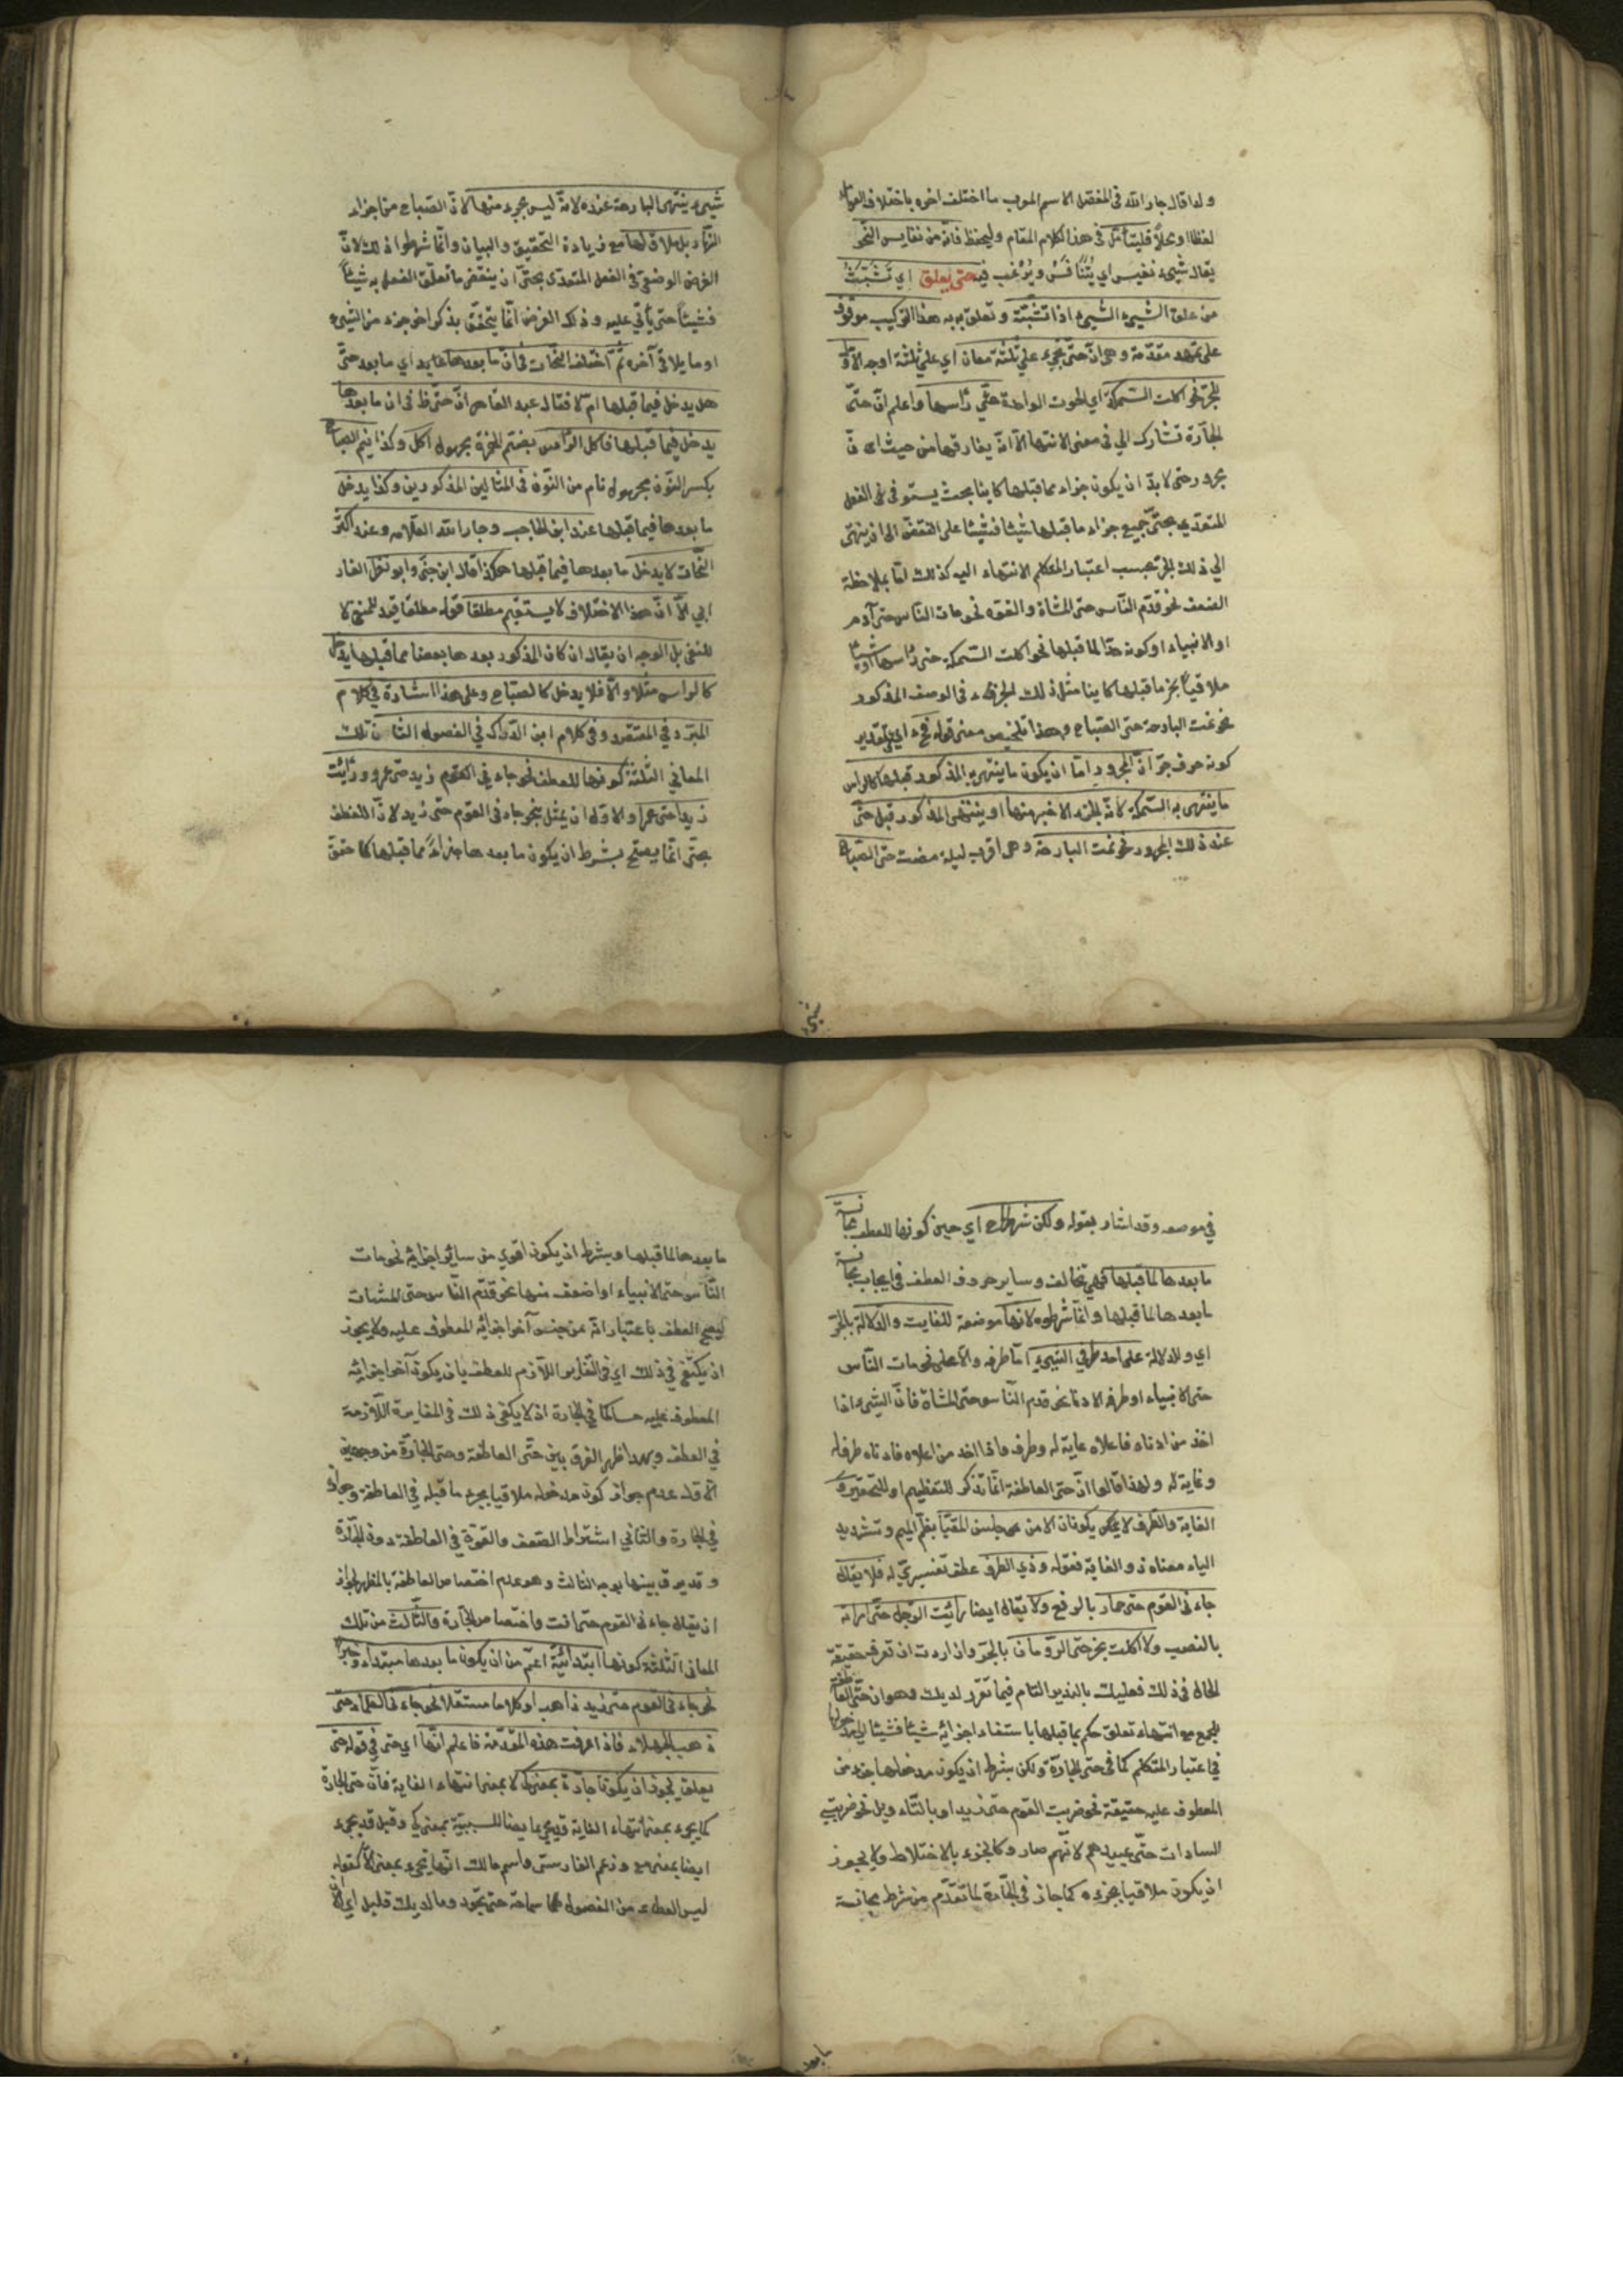 ولذا قال جار الله في المفصل الاسم المعرب ما اختلف اخره باختلاف العوامل
لفظا او محلا فليتأمل في هذا الكلام المقام وليحفظ فانه من نفايس النحو
يقال شيء نفيس اي يُتنافَسُ ويُرغب فيه حتى يعلق اي تشبّث
من علق الشيء الشيء اذا تشبّثه وتعلق به به هذا التركيب موقوف
على تمهيد مقدمة وهي انّ حتى تجيء على ثلثة معان اي على ثلثة اوجه الاوّل
للجرّ نحو اكلت السمكة اي الحوت الواحدة حتّى رأسها واعلم انّ حتّى
الجارّة تشارك الى في معنى الانتهاء الاّ انّه يفارقها من حيث ان
مجرور حتى لا بدّ ان يكون جزاء مما قبلها كاينا بحيث يستوفى في الفعل
المتعدي بحتّى جميع جزاء ما قبلها شيئا فشيئا على التقضّي الى ان ينتهى
الي ذلك الجزء بحسب اعتبار المتكلم الانتهاء اليه كذلك امّا بملاحظة
الضعف نحو قدم النّاس حتى المشاة والقوّة نحو مات النّاس حتى آدم
او الانبياء او كونه حدّا لما قبلها نحو اكلت السّمكة حتى رأسها او شيئا
ملاقياً بجزء ما قبلها كاينا مثل ذلك الجزء في الوصف المذكور
نحو نمت البارحة حتى الصّباح وهذا تلخيص معنى قوله اي بتقدير
كونه حرف جرّ انّ المجرور امّا ان يكون ما ينتهي به المذكور قبلها كالراس
ما ينتهى به السّمكة لانّه الجزء الاخير منها او ينتهي المذكور قبل حتّى
عند ذلك المجرور نحو نمت البارحة وهي اقرب ليلة مضت حتّى الصّباح
شيء ينتهى البارحة عنده لانّه ليس بجزء منها لانّ الصّباح من اجزاء
النّهار بل ملاق لها مع زيادة التحقيق والبيان وانّما شرطوا ذلك لانّ
الغرض الوضعي في الفعل المتعدّى بحتّى ان ينقضى ما تعلّق الفعل به شيئاً
فشيئاً حتى يأتي عليه وذلك الغرض انّما يتحقّق بذكر اخر جزء من الشيء
او ما يلاقي آخره ثمّ اختلف النّحات في انّ ما بعدها اي ما بعد حتّى
هل يدخل فيما قبلها ام لا فقال عبد القاهر انّ حتّى في ان ما بعدها
يدخل فيما قبلها فاكل الرّأس بضمّ الهمزة مجهول اكل وكذا نيم الصّباح
بكسر النّون مجهول نام من النّوم في المثالين المذكورين وكذا يدخل
ما بعدها فيما قبلها عند ابن الحاجب وجار الله العلّامه وعند اكثر
النّحات لا يدخل ما بعدها فيما قبلها هكذا قال ابن جنّى وابو الفار
ابي الاّ انّ هذا الاختلاف لا يستقيم مطلقا قوله مطلقا قيد للمنفي لا
للنفى بل الوجه ان يقال ان كان المذكور بعدها بعضا مما قبلها يدخل
كالراس مثلا والاّ فلا يدخل كالصّباح وعلى هذا اشارة في كلام
المبرّد في المقتضب وفي كلام ابن الدّرّاك في الفصول الثاني تلك
المعاني الثّلثة كونها للعطف نحو جاءني القوم زيد حتى عمرو ورأيت
زيدا حتى عمرا والاولى ان يمثل بنحو جاءنى القوم حتّى زيد لانّ العطف
بحتّى انّما يصحّ بشرط ان يكون ما بعدها جزاءً مما قبلها كما حقق
في موضعه وقد اشار بقوله ولكن شرطها اي حين كونها للعطف مجانسة
ما بعدها لما قبلها فهي تخالف وساير حروف العطف في ايجاب مجانسة
ما بعدها لما قبلها وانّما شرطوه لانّها موضعة للغايت والدّلالة بالجرّ
اي وللدلالة على احد طرفي الشيء امّا طرفه والاعلى نحو مات النّاس
حتى الانبياء او طرفه الادنا نحو قدم النّاس حتى المشاة فانّ الشيء اذا
اخذ من ادناه فاعلاه غاية له وطرف واذا اخذ من اعلاه فادناه طرف له
وغاية له ولهذا قالوا انّ حتى العاطفة انّما تذكر للتعظيم او للتحقير و
الغاية والطّرف لا يمكن يكونان الا من جنس المغيّا بضمّ الميم وتشديد
الياء معناه ذو الغاية فقوله وذي الطّرف عطف تفسيريّ له فلا يقال
جاءنى القوم حتى حمار بالرفع ولا يقال ايضا رأيت الرّجل حتّى امراة
بالنصب ولا اكلت بخبز حتى الرّومان بالجرّ وان اردت ان تعرف حقيقة
الحال في ذلك فعليك بالتدبر التام فيما تقرّر لديك وهو ان حتى العاطفة
للجمع مع انتهاء تعلق حكم بما قبلها باستفاء اجزائه شيئا فشيئا الى مدخولها
في اعتبار المتكلم كما في حتى الجارّة ولكن بشرط ان يكون مدخلها جزء من
المعطوف عليه حقيقة نحو ضربت القوم حتى زيدا او بالتّاويل نحو ضربت
السادات حتّى عبيدهم لانّهم صاروا كالجزء بالاختلاط ولا يجوز
ان يكون ملاقيا بجزءه كما جاز في الجّارة لما تقدّم من شرط مجانسة
ما بعدها لما قبلها وبشرط ان يكون اقوي من سائر اجزائه نحو مات
النّاس حتى الانبياء او اضعف منها نحو قدم النّاس حتى المشات
ليصح العطف باعتبار انّه من جنس آخر اجزائه المعطوف عليه ولا يجوز
ان يكتفي في ذلك اي في التّغاير اللّازم للعطف بان يكون آخر اجزائه
المعطوف عليه في الجارة اذ لا يكفى ذلك في المغايرة اللّازمة
في العطف وبهذا ظهر الفرق بين حتّى العاطفة وحتى الجارّة من وجهين
الاوّل عدم جواز كون مدخوله ملاقيا بجزء ما قبله في العاطفة وجوازه
في الجارة والثّاني اشتراط الضعف والقوّة في العاطفة دون الجارّة
وقد يفرق بينها بوجه الثالث وهو عدم اختصاص العاطفة بالمظهر لجواز
ان يقال جاءنى القوم حتى انت واختصاص الجّارة والثّالث من تلك
المعانى الثّلثة كونها ابتدائيّة اعمّ من ان يكون ما بعدها مبتداء وخبرا
نحو جاءنى القوم حتى زيد ذاهب او كلاما مستقلا نحو جاءنى العلماء حتى
ذهب الجهلاء فاذا عرفت هذه المقدّمة فاعلم انّها اي حتى في قوله حتى
يعلق يجوز ان يكون جارّة بمعنى كي لا بمعنى انتهاء الغاية فانّ حتى الجارّة
كما يجيء بمعنى انتهاء الغاية قد يجيء ايضا للسببيّة بمعنى كي وقيل قد يجيء
ايضا بمعنى مع وزعم الفارسى واسم مالك انّها تجيء بمعنى الاّ كقوله
ليس العطاء من الفضول سماحة حتى تجود وما لديك قليل اي الاّ ان